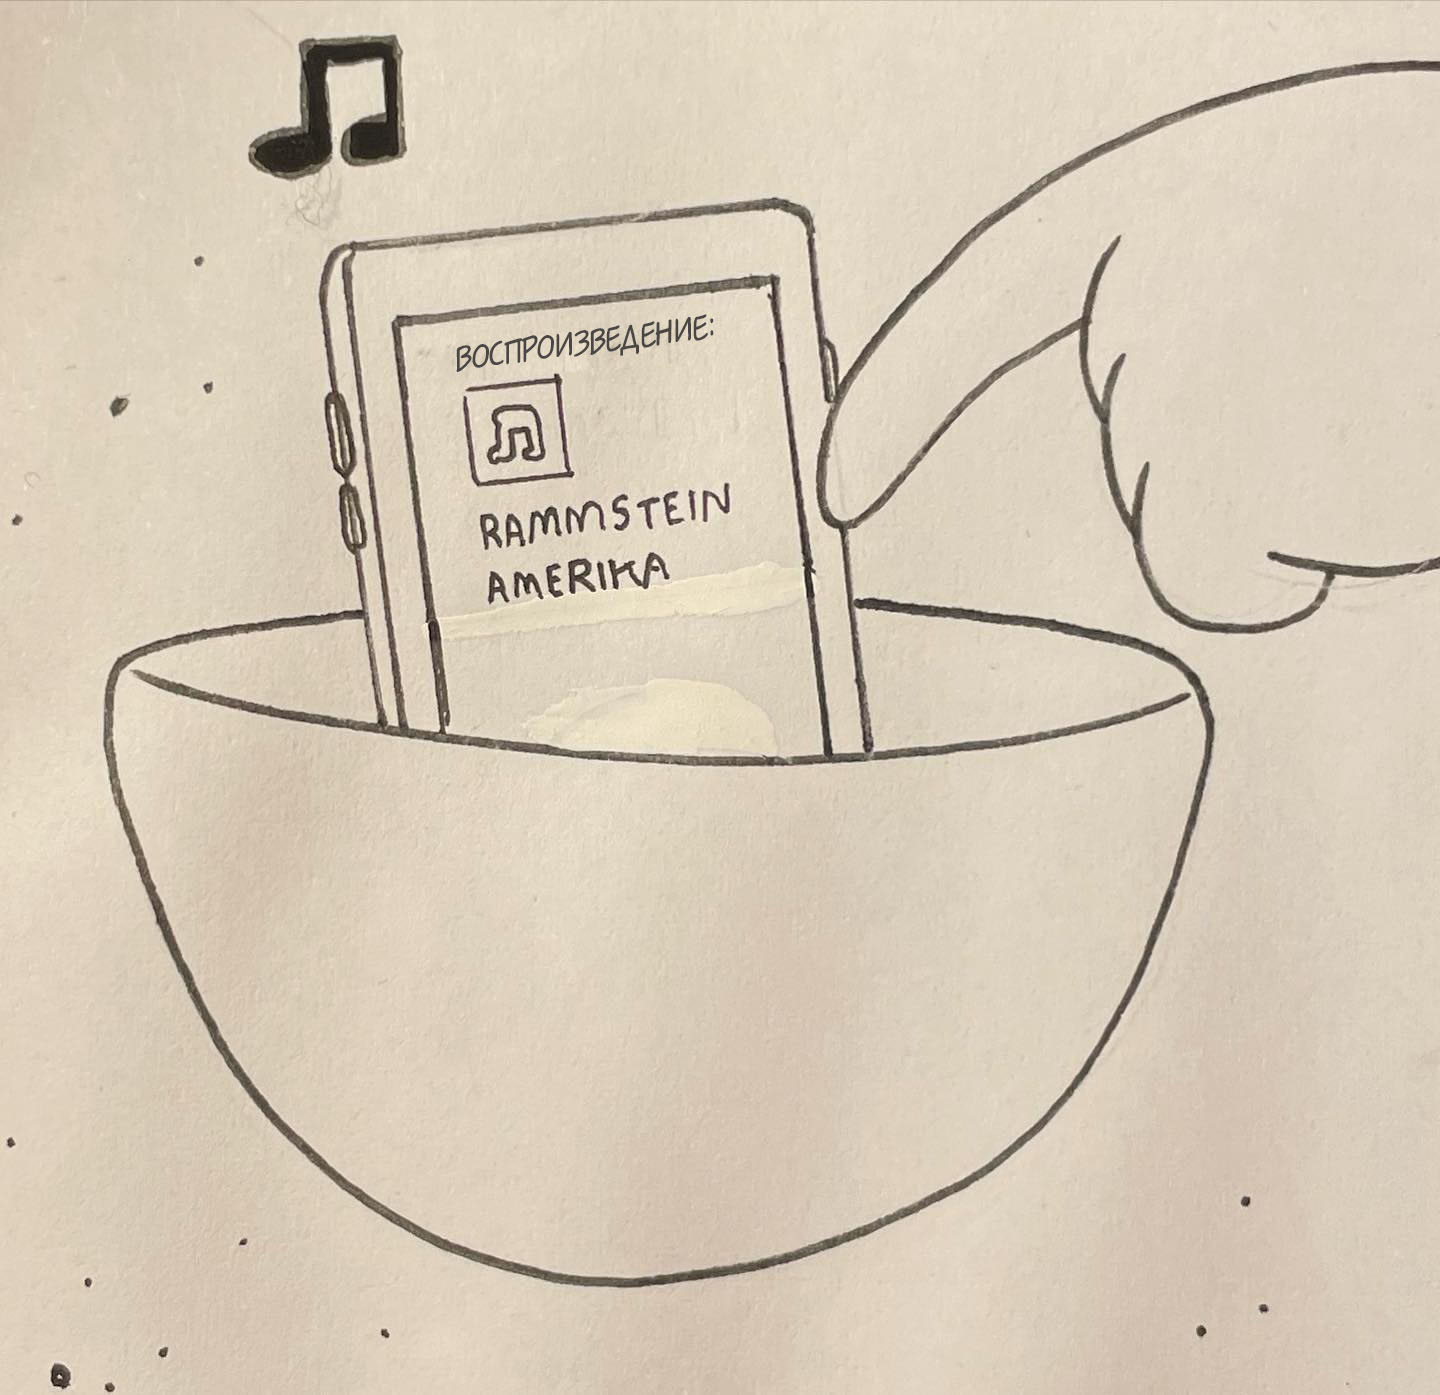 ВОСПРОИЗВЕДЕНИЕ:
RAMMSTEIN
AMERIKA